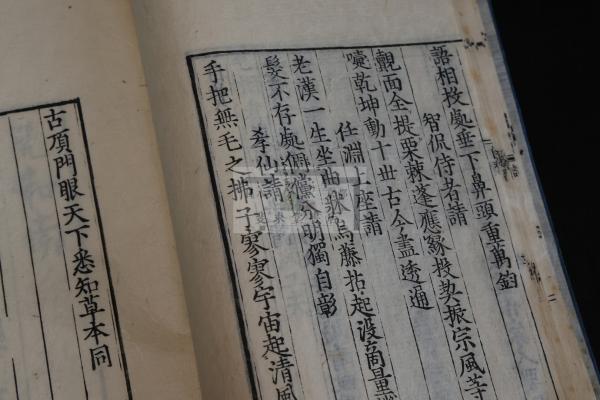 語相投處垂下鼻頭重萬鈞
智侃侍者請
覿面全提栗棘蓬應緣投契振宗風等
嚏乾坤動十世古今盡透通
任淵上座請
老漢一生坐曲錄烏藤拈起沒商量
髮不存處分明獨自彰
孝仙請
手把無毛之拂子寥寥宇宙起清風
古頂門眼天下悉知草本同